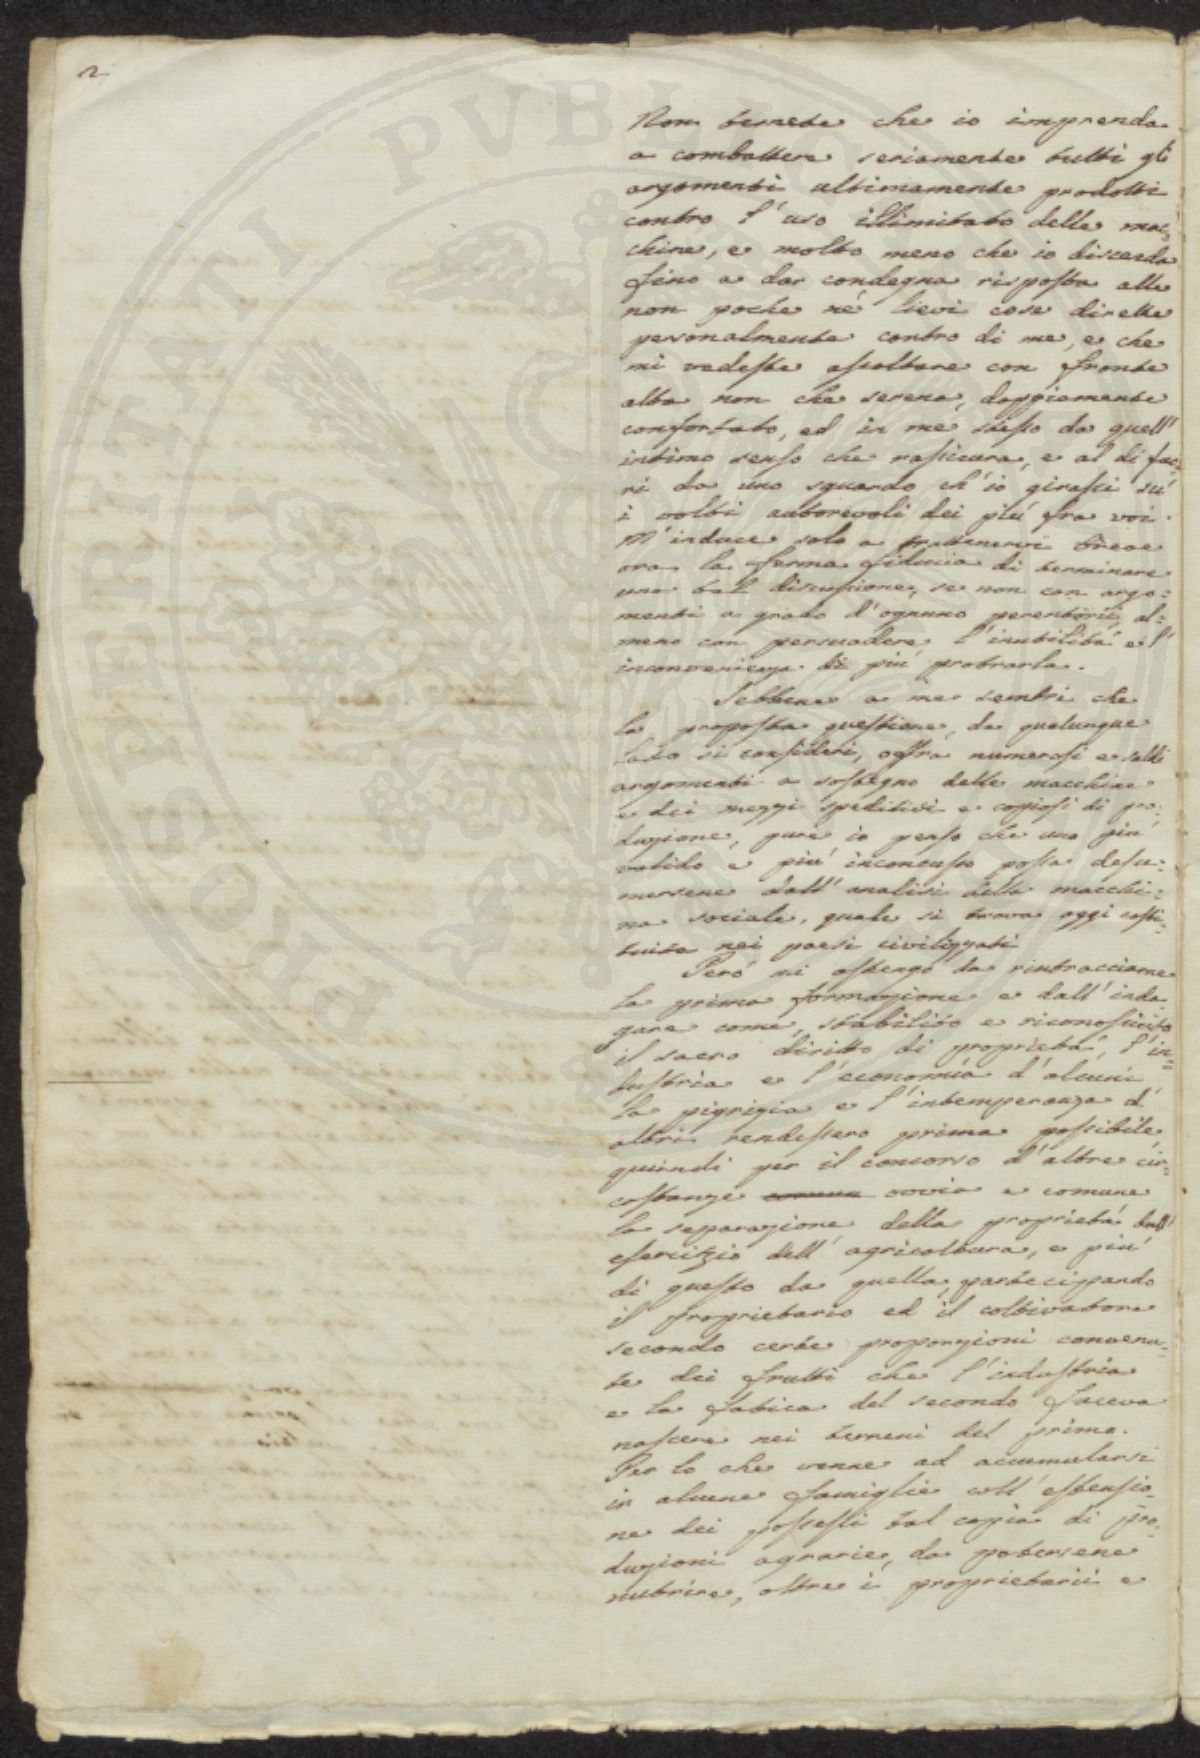 2
Non temete che io imprenda
a combattere seriamente tutti gli
argomenti ultimamente prodotti
contro l'uso illimitato delle mac=
chine, e molto meno che io discenda
fino a dar condegna risposta alle
non poche né lievi cose dirette
personalmente contro di me, e che
mi vedeste ascoltare con fronte
alta non che serena, doppiamente
confortato, ed in me stesso da quell'
intimo senso che rassicura, e al di fuo=
ri da uno sguardo ch'io girassi su
i volti autorevoli dei più fra voi.
M'induce solo a trattenervi breve
ora la ferma fiducia di terminare
una tal discussione, se non con argo=
menti a grado d'ognuno perentorii, al=
meno con persuadere l'inutilità e l'
inconvenienza di più protrarla.
Sebbene a me sembri che
la proposta questione, da qualunque
lato si consideri, offra numerosi e saldi
argomenti a sostegno delle macchine
e dei mezzi speditivi e copiosi di pro=
duzione, pure io penso che uno più
valido e più inconcusso possa desu=
mersene dall'analisi della macchi=
na sociale, quale si trova oggi costi=
tuita nei paesi civilizzati
Però mi astengo da rintracciarne
la prima formazione e dall'inda
gare come, stabilito e riconosciuto
il sacro diritto di proprietà, l'in=
dustria e l'economia d'alcuni
la pigrizia e l'intemperanza d'
altri rendessero prima possibile
quindi per il concorso d'altre cir=
costanze comune ovvia e comune
la separazione della proprietà dall'
esercizio dell'agricoltura, e più
di questo da quella, partecipando
il proprietario ed il coltivatore
secondo certe proporzioni convenu=
te dei frutti che l'industria
e la fatica del secondo faceva
nascere nei terreni del primo.
Per lo che venne ad accumularsi
in alcune famiglie coll'estensio=
ne dei possessi tal copia di pro=
duzioni agrarie, da potersene
nutrire, oltre i proprietarii e
PROSPERITATI PVBLICAE